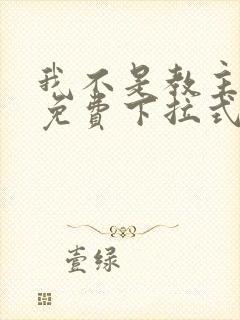 我不是教主
免费下拉式
壹绿